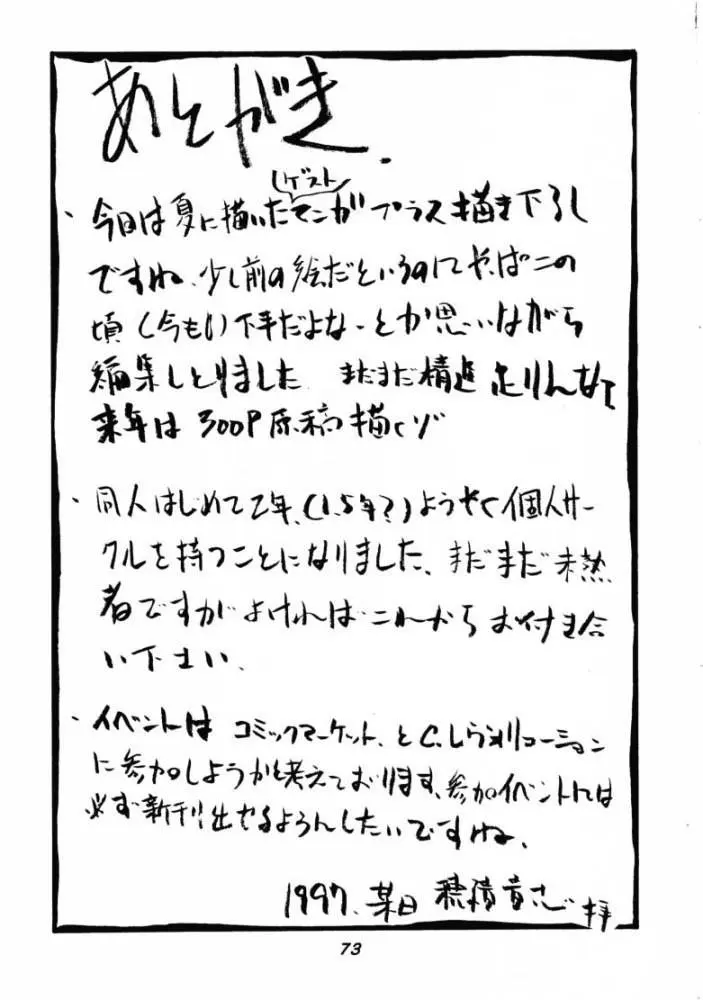 あとがき.
(ゲスト)
・今日は夏に描いたマンガプラス描き下ろし
ですね、少し前の絵だというのにやっぱこの
頃(今も!)下手だよな-とか思いながら
編集しとりました まだまだ精進足りんなて
来年は300P原稿描くゾ
・同人はじめて2年、(1.5年?)ようやく個人サー
クルを持つことになりました、まだまだ未熟
者ですがよければこれからお付き合
い下さい、
・イベントは コミックマーケット、とC.レヴォリューション
に参加しようかと考えております、参加イベントには
必ず新刊出せるようんしたいですね、
1997、某日 穂積貴志 拝
73